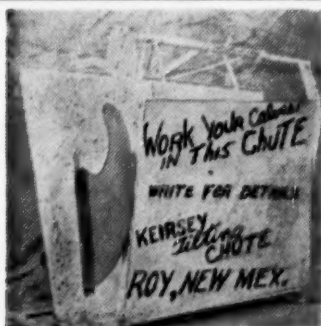 WORK Your Calves
IN THIS CHUTE
WRITE FOR DETAILS
KEIRSEY
Tilting
CHUTE
ROY, NEW MEX.